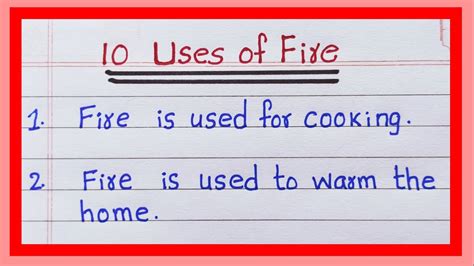 10 Uses of Fire
1. Fire is used for cooking.
2. Fire is used to warm the
home.